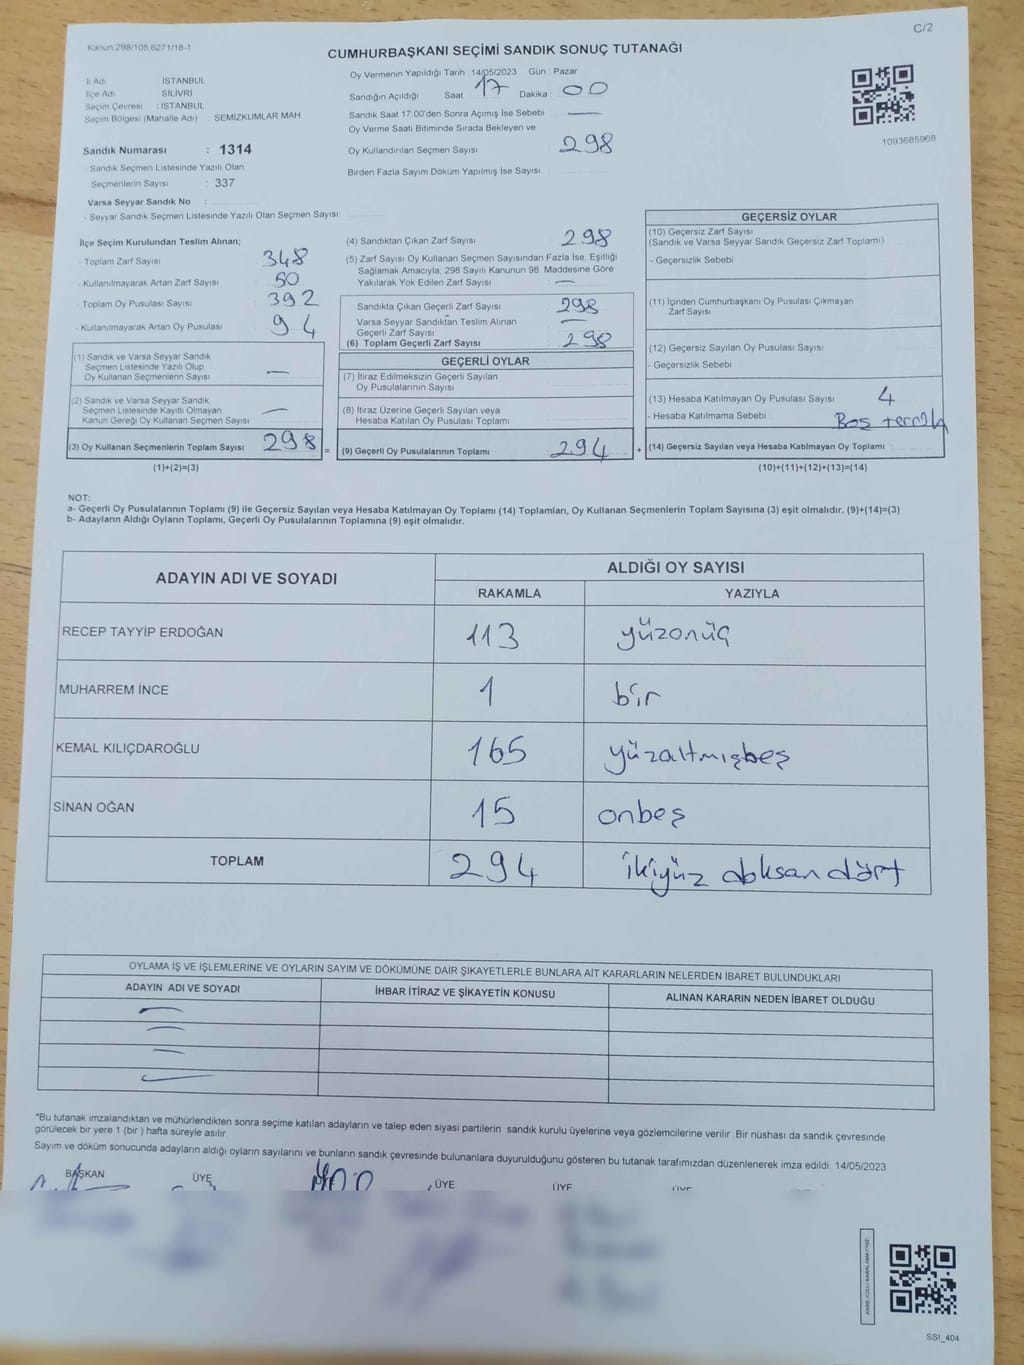 C/2
Kanun:298/105,6271/18-1
CUMHURBAŞKANI SEÇİMİ SANDIK SONUÇ TUTANAĞI
İl Adı : İSTANBUL
İlçe Adı : SİLİVRİ
Seçim Çevresi : İSTANBUL
Seçim Bölgesi (Mahalle Adı) : SEMİZKUMLAR MAH.
Sandık Numarası : 1314
- Sandık Seçmen Listesinde Yazılı Olan
Seçmenlerin Sayısı : 337
Varsa Seyyar Sandık No :
- Seyyar Sandık Seçmen Listesinde Yazılı Olan Seçmen Sayısı:
Oy Vermenin Yapıldığı Tarih : 14/05/2023 Gün : Pazar
Sandığın Açıldığı Saat : 17 Dakika : 00
Sandık Saat 17.00'den Sonra Açımış İse Sebebi : —
Oy Verme Saati Bitiminde Sırada Bekleyen ve
Oy Kullandırılan Seçmen Sayısı : 298
Birden Fazla Sayım Döküm Yapılmış İse Sayısı :
1093685968
İlçe Seçim Kurulundan Teslim Alınan;
- Toplam Zarf Sayısı : 348
- Kullanılmayarak Artan Zarf Sayısı : 50
- Toplam Oy Pusulası Sayısı : 392
- Kullanılmayarak Artan Oy Pusulası : 94
(1) Sandık ve Varsa Seyyar Sandık
Seçmen Listesinde Yazılı Olup
Oy Kullanan Seçmenlerin Sayısı : —
(2) Sandık ve Varsa Seyyar Sandık
Seçmen Listesinde Kayıtlı Olmayan
Kanun Gereği Oy Kullanan Seçmen Sayısı : —
(3) Oy Kullanan Seçmenlerin Toplam Sayısı : 298
(1)+(2)=(3)
=
(4) Sandıktan Çıkan Zarf Sayısı : 298
(5) Zarf Sayısı Oy Kullanan Seçmen Sayısından Fazla İse, Eşitliği
Sağlamak Amacıyla; 298 Sayılı Kanunun 98. Maddesine Göre
Yakılarak Yok Edilen Zarf Sayısı : —
Sandıkta Çıkan Geçerli Zarf Sayısı : 298
Varsa Seyyar Sandıktan Teslim Alınan
Geçerli Zarf Sayısı : —
(6) Toplam Geçerli Zarf Sayısı : 298
GEÇERLİ OYLAR
(7) İtiraz Edilmeksizin Geçerli Sayılan
Oy Pusulalarının Sayısı :
(8) İtiraz Üzerine Geçerli Sayılan veya
Hesaba Katılan Oy Pusulası Toplamı :
(9) Geçerli Oy Pusulalarının Toplamı : 294
+
GEÇERSİZ OYLAR
(10) Geçersiz Zarf Sayısı :
(Sandık ve Varsa Seyyar Sandık Geçersiz Zarf Toplamı)
- Geçersizlik Sebebi :
(11) İçinden Cumhurbaşkanı Oy Pusulası Çıkmayan
Zarf Sayısı :
(12) Geçersiz Sayılan Oy Pusulası Sayısı :
- Geçersizlik Sebebi :
(13) Hesaba Katılmayan Oy Pusulası Sayısı : 4
- Hesaba Katılmama Sebebi : Boş
(14) Geçersiz Sayılan veya Hesaba Katılmayan Oy Toplamı :
(10)+(11)+(12)+(13)=(14)
NOT:
a- Geçerli Oy Pusulalarının Toplamı (9) ile Geçersiz Sayılan veya Hesaba Katılmayan Oy Toplamı (14) Toplamları, Oy Kullanan Seçmenlerin Toplam Sayısına (3) eşit olmalıdır. (9)+(14)=(3)
b- Adayların Aldığı Oyların Toplamı, Geçerli Oy Pusulalarının Toplamına (9) eşit olmalıdır.
ADAYIN ADI VE SOYADI
ALDIĞI OY SAYISI
RAKAMLA YAZIYLA
RECEP TAYYİP ERDOĞAN 113 yüzonüç
MUHARREM İNCE 1 bir
KEMAL KILIÇDAROĞLU 165 yüzaltmışbeş
SİNAN OĞAN 15 onbeş
TOPLAM 294 ikiyüz doksan dört
OYLAMA İŞ VE İŞLEMLERİNE VE OYLARIN SAYIM VE DÖKÜMÜNE DAİR ŞİKAYETLERLE BUNLARA AİT KARARLARIN NELERDEN İBARET BULUNDUKLARI
ADAYIN ADI VE SOYADI İHBAR İTİRAZ VE ŞİKAYETİN KONUSU ALINAN KARARIN NEDEN İBARET OLDUĞU
*Bu tutanak imzalandıktan ve mühürlendikten sonra seçime katılan adayların ve talep eden siyasi partilerin sandık kurulu üyelerine veya gözlemcilerine verilir .Bir nüshası da sandık çevresinde
görülecek bir yere 1 (bir ) hafta süreyle asılır.
Sayım ve döküm sonucunda adayların aldığı oyların sayılarını ve bunların sandık çevresinde bulunanlara duyurulduğunu gösteren bu tutanak tarafımızdan düzenlenerek imza edildi. 14/05/2023
BAŞKAN ÜYE ÜYE ÜYE ÜYE
SSI_404